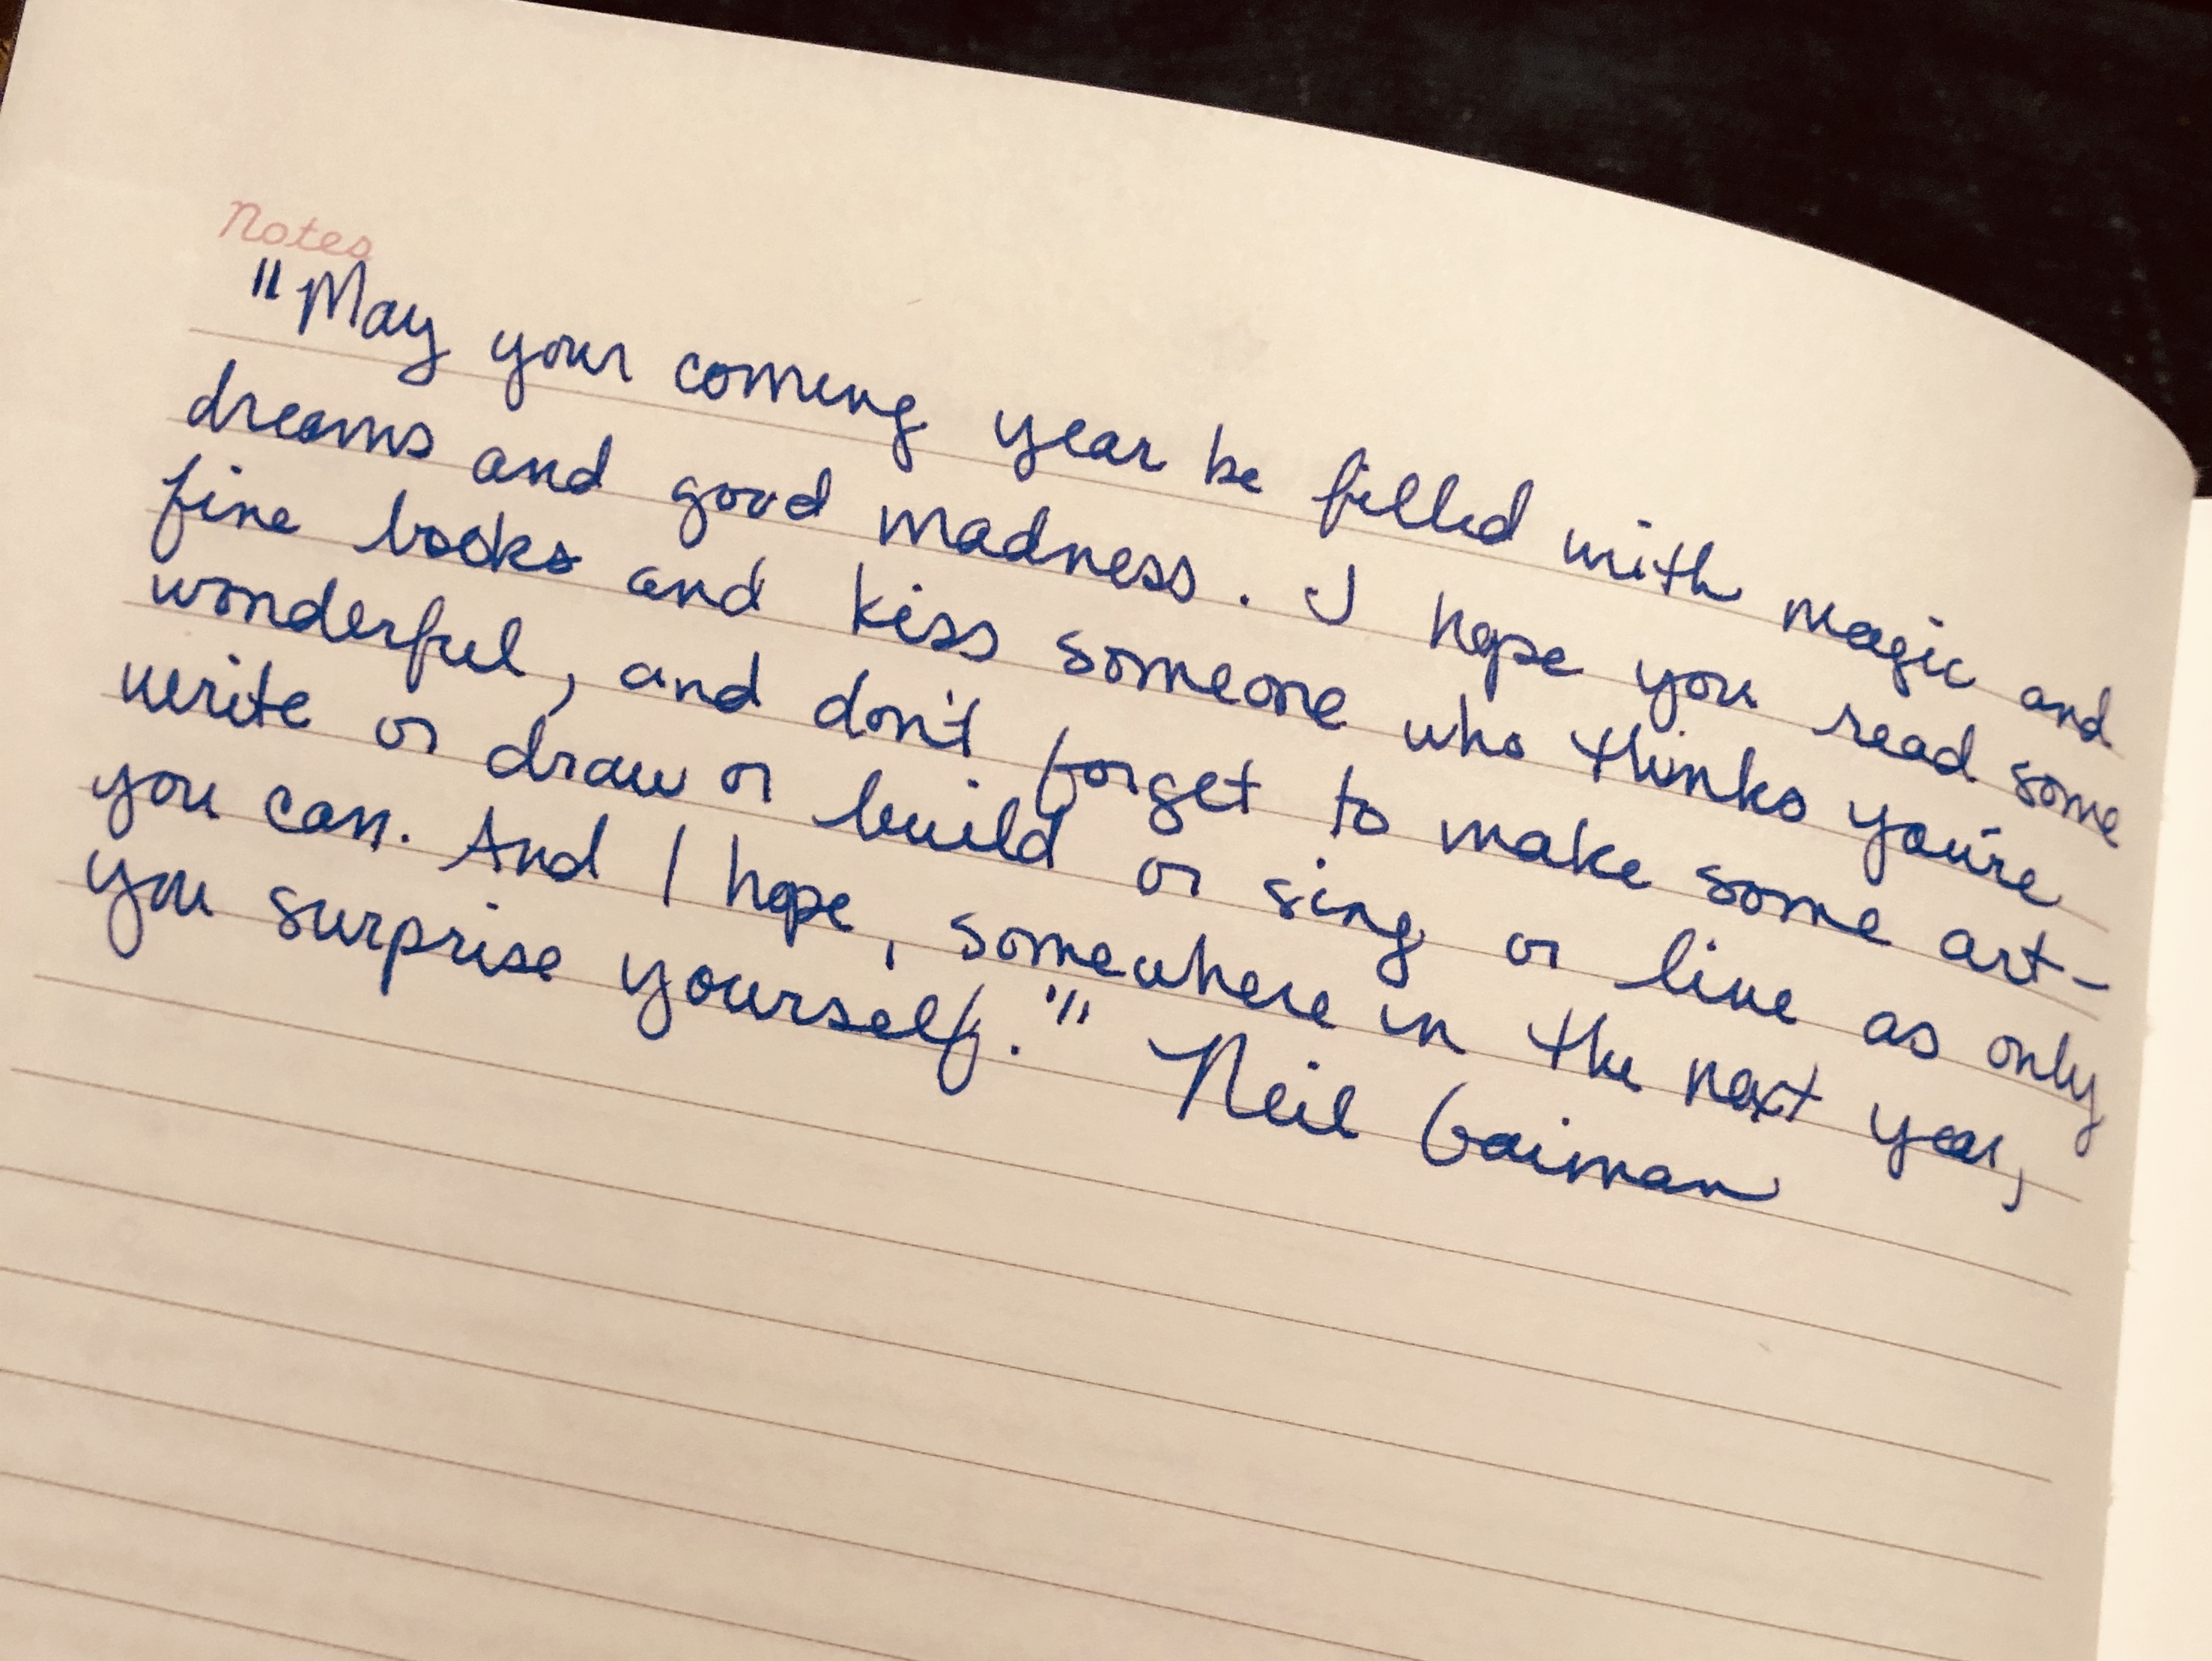 Notes
"May your coming year be filled with magic and
dreams and good madness. I hope you read some
fine books and kiss someone who thinks you're
wonderful, and don't forget to make some art-
write or draw or build or sing or live as only
you can. And I hope, somewhere in the next year,
you surprise yourself." Neil Gaiman